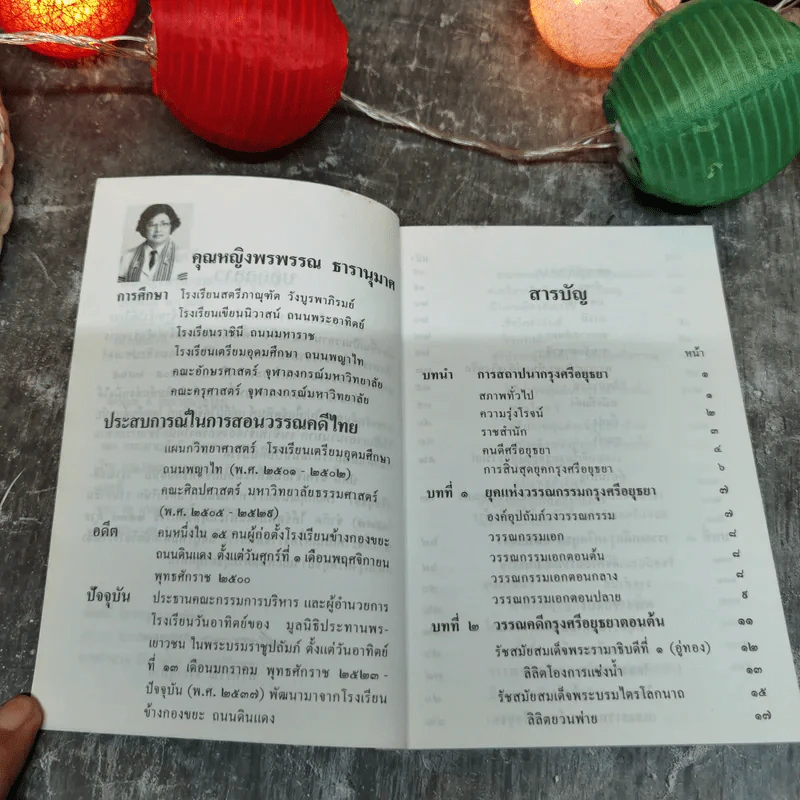 คุณหญิงพรพรรณ ธารานุมาศ
การศึกษา โรงเรียนสตรีภาณุทัต วังบูรพาภิรมย์
โรงเรียนเขียนนิวาสน์ ถนนพระอาทิตย์
โรงเรียนราชินี ถนนมหาราช
โรงเรียนเตรียมอุดมศึกษา ถนนพญาไท
คณะอักษรศาสตร์ จุฬาลงกรณ์มหาวิทยาลัย
คณะครุศาสตร์ จุฬาลงกรณ์มหาวิทยาลัย
ประสบการณ์ในการสอนวรรณคดีไทย
แผนกวิทยาศาสตร์ โรงเรียนเตรียมอุดมศึกษา
ถนนพญาไท (พ.ศ. ๒๕๐๑ - ๒๕๐๒)
คณะศิลปศาสตร์ มหาวิทยาลัยธรรมศาสตร์
(พ.ศ. ๒๕๐๕ - ๒๕๒๙)
อดีต คนหนึ่งใน ๑๕ คนผู้ก่อตั้งโรงเรียนข้างกองขยะ
ถนนดินแดง ตั้งแต่วันศุกร์ที่ ๑ เดือนพฤศจิกายน
พุทธศักราช ๒๕๐๐
ปัจจุบัน ประธานคณะกรรมการบริหาร และผู้อำนวยการ
โรงเรียนวันอาทิตย์ของ มูลนิธิประทานพร-
เยาวชน ในพระบรมราชูปถัมภ์ ตั้งแต่วันอาทิตย์
ที่ ๑๓ เดือนมกราคม พุทธศักราช ๒๕๒๓ -
ปัจจุบัน (พ.ศ. ๒๕๓๗) พัฒนามาจากโรงเรียน
ข้างกองขยะ ถนนดินแดง
สารบัญ
หน้า
บทนำ การสถาปนากรุงศรีอยุธยา ๑
สภาพทั่วไป ๑
ความรุ่งโรจน์ ๒
ราชสำนัก ๓
คนดีศรีอยุธยา ๔
การสิ้นสุดยุคกรุงศรีอยุธยา ๖
บทที่ ๑ ยุคแห่งวรรณกรรมกรุงศรีอยุธยา ๗
องค์อุปถัมภ์วงวรรณกรรม ๗
วรรณกรรมเอก ๘
วรรณกรรมเอกตอนต้น ๘
วรรณกรรมเอกตอนกลาง ๘
วรรณกรรมเอกตอนปลาย ๙
บทที่ ๒ วรรณคดีกรุงศรีอยุธยาตอนต้น ๑๑
รัชสมัยสมเด็จพระรามาธิบดีที่ ๑ (อู่ทอง) ๑๒
ลิลิตโองการแช่งน้ำ ๑๓
รัชสมัยสมเด็จพระบรมไตรโลกนาถ ๑๕
ลิลิตยวนพ่าย ๑๗